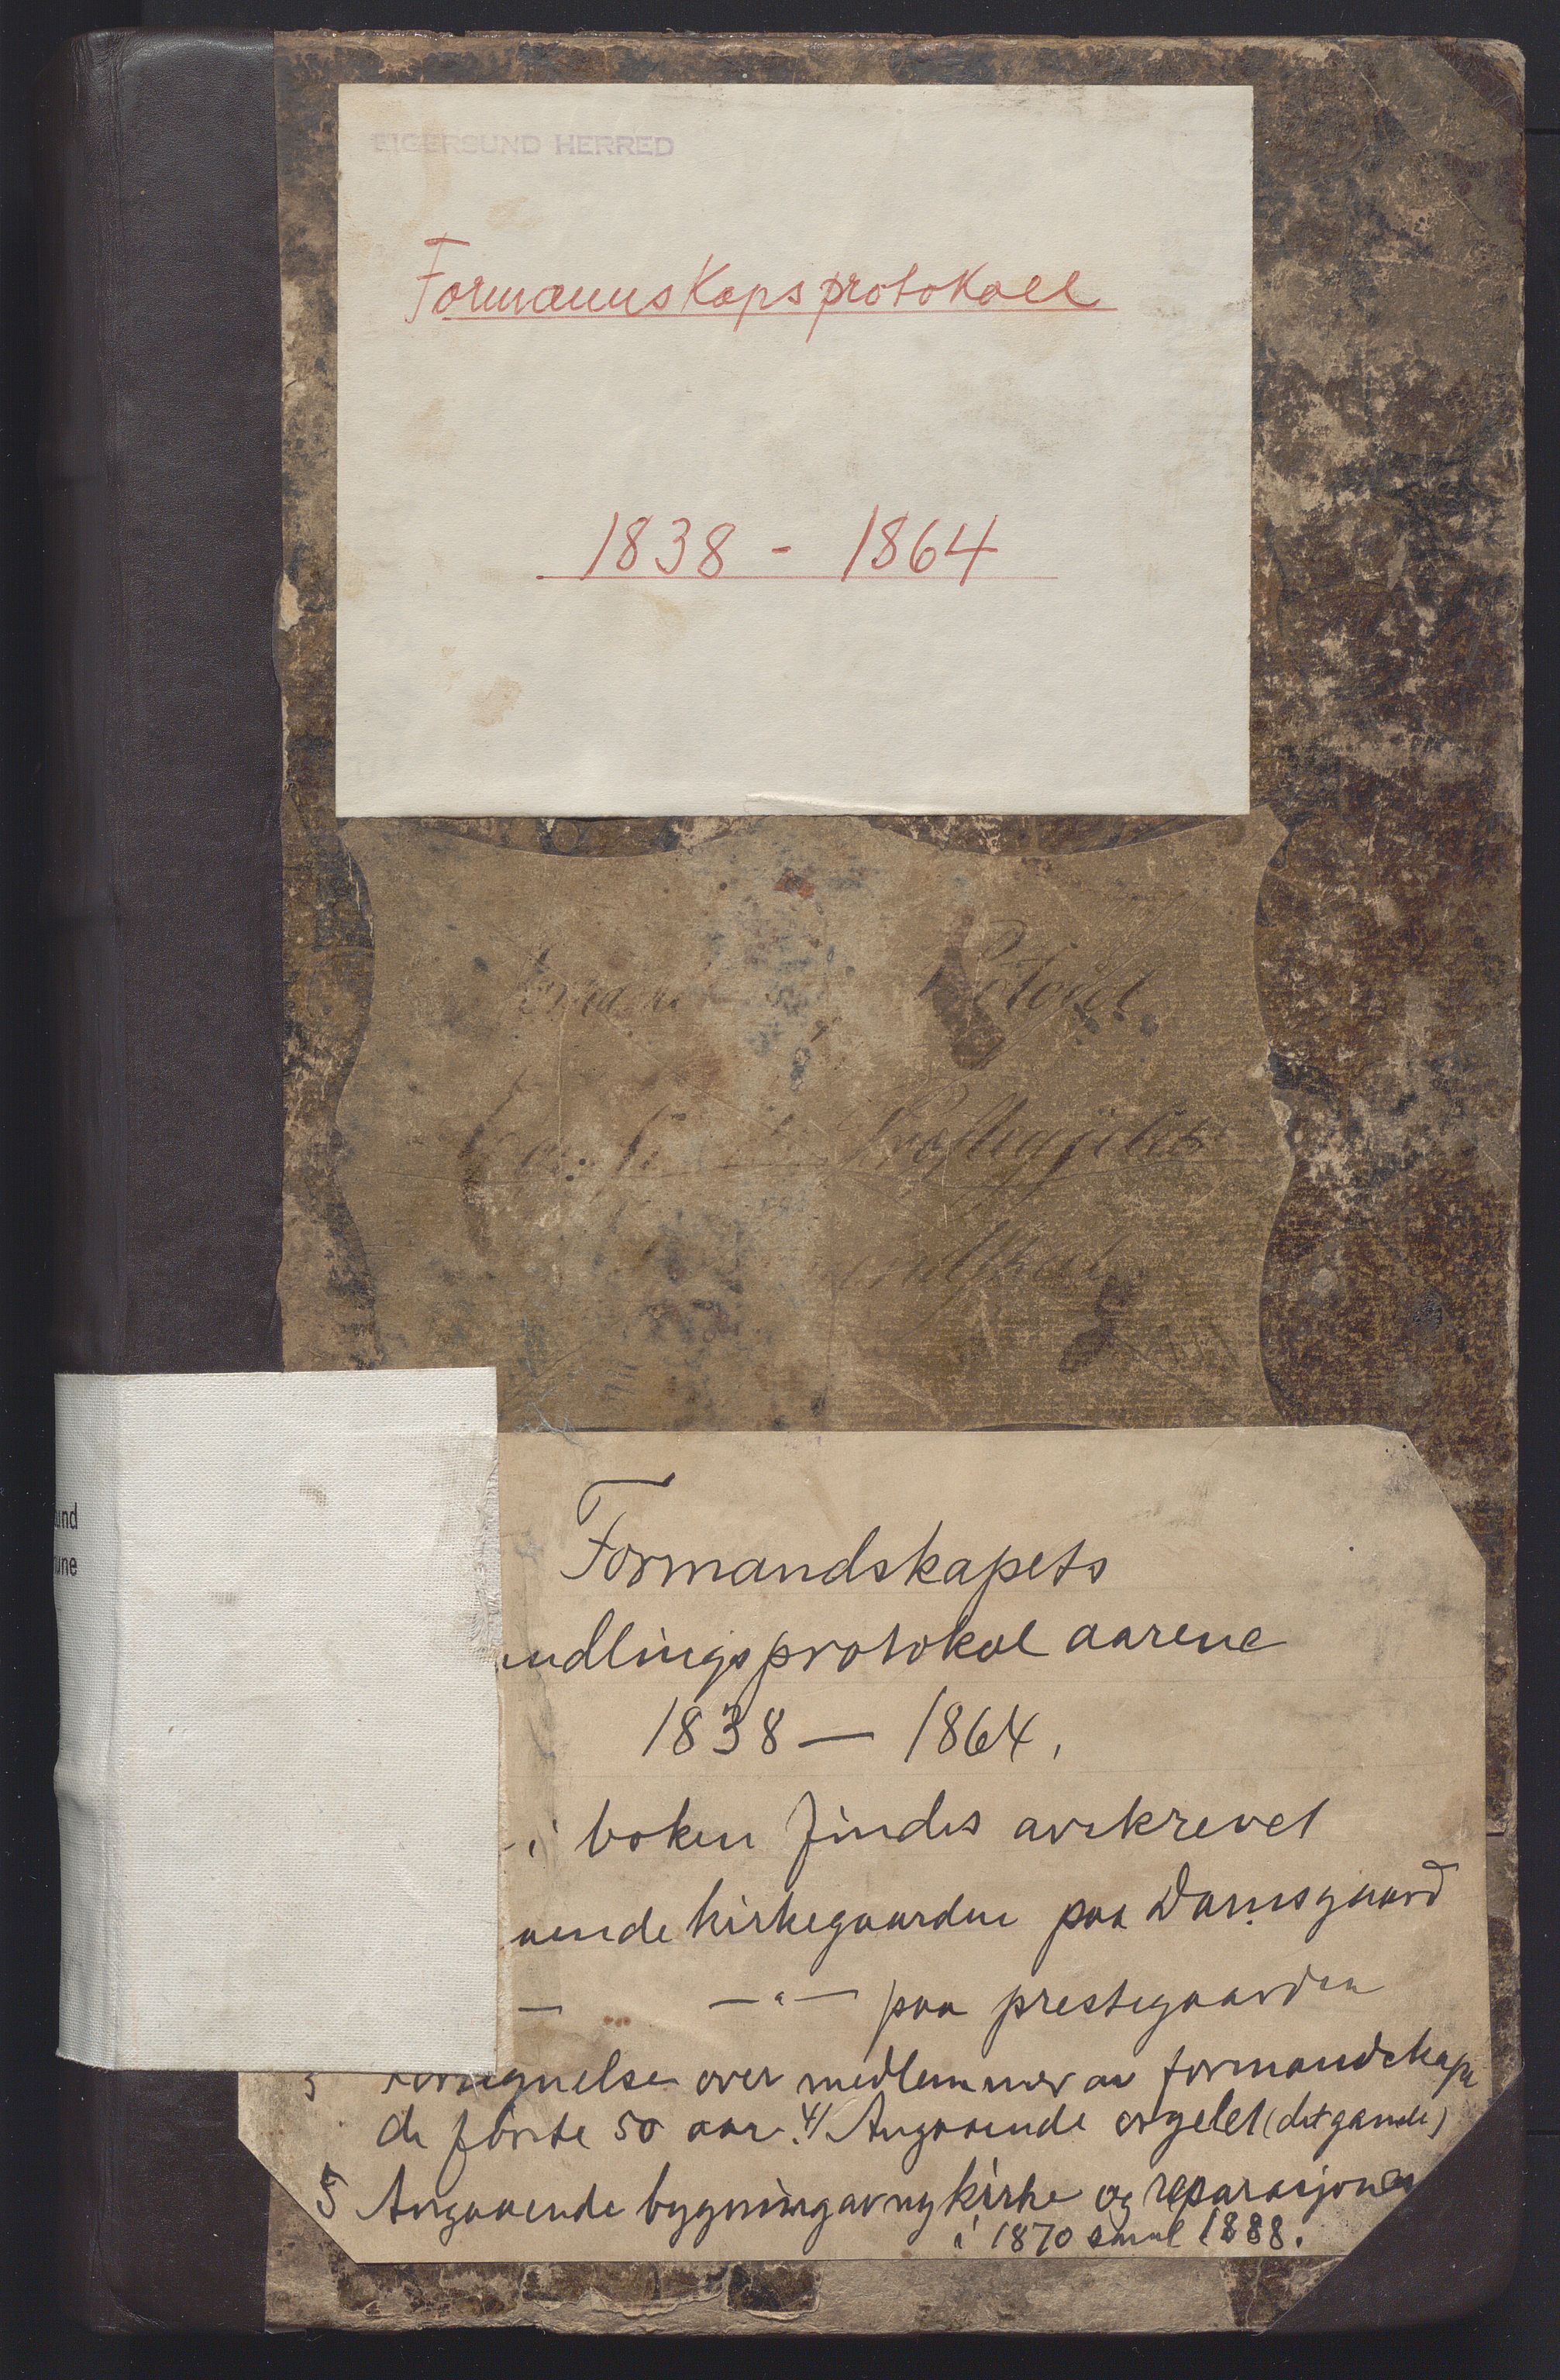 EIGERSUND HERRED
Formannskapsprotokoll
1838 - 1864
Protocol
Præstegjelds
und
une
Formandskapets
andlingsprotokol aarene
1838 — 1864.
i boken findes avskrevet
aaende kirkegaarden paa Damsgaard
— —"— paa prestegaarden
3 Fortegnelse over medlemmer av formandskape
de første 50 aar. 4/ Angaaende orgelet (det gamle)
5 Angaaende bygning av ny kirke og reparasjoner
i 1870 samt 1888.